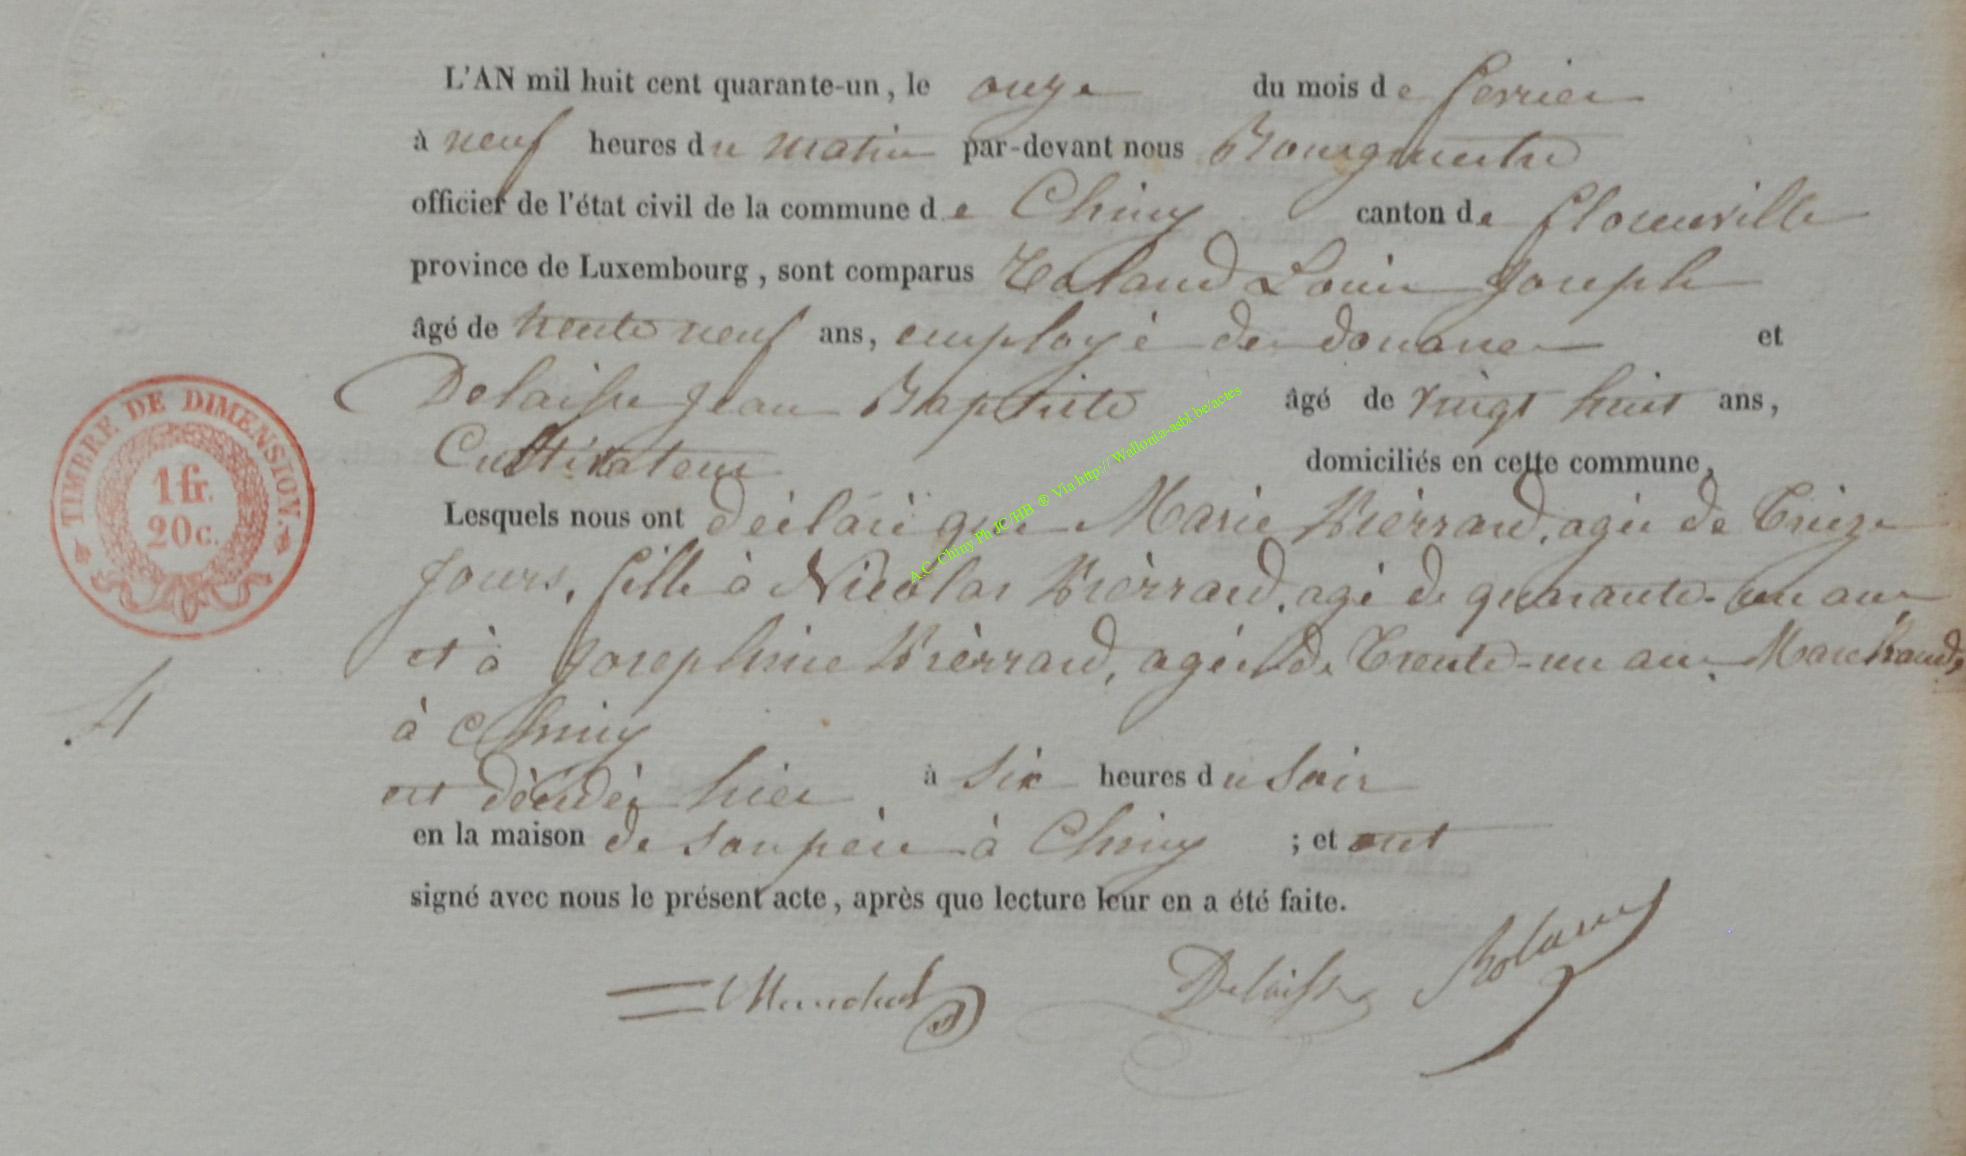 L'AN mil huit cent quarante-un, le onze du mois de fevrier
à neuf heures du matin par-devant nous Bourgmestre
officier de l'état civil de la commune de Chiny canton de florenville
province de Luxembourg, sont comparus Roland Louis Joseph
âgé de trente neuf ans, employé des douanes et
Delaisse Jean Baptiste âgé de vingt huit ans,
Cultivateur domiciliés en cette commune,
Lesquels nous ont déclaré que Marie Pierrard, agée de treize
Jours, fille à Nicolas Pierrard, agé de quarante-un ans
et à Josephine Pierrard, agée de trente-un ans Marchands
à Chiny
est décédée hier à six heures du soir
en la maison de son père à Chiny ; et ont
signé avec nous le présent acte, après que lecture leur en a été faite.
Delaisse Roland
TIMBRE DE DIMENSION.
1 fr.
20 c.
4
A.C. Chiny Ph JC/HB ® Via http://Wallonia-asbl.be/actes